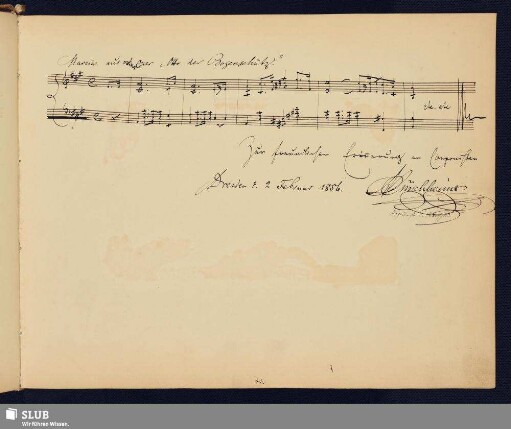 Marcia aus der Oper „Otto der Bogenschütz"
da die
Zur freundlichen Erinnerung an Componisten
Dresden d. 2 Februar 1886.
SLUB
Wir führen Wissen.